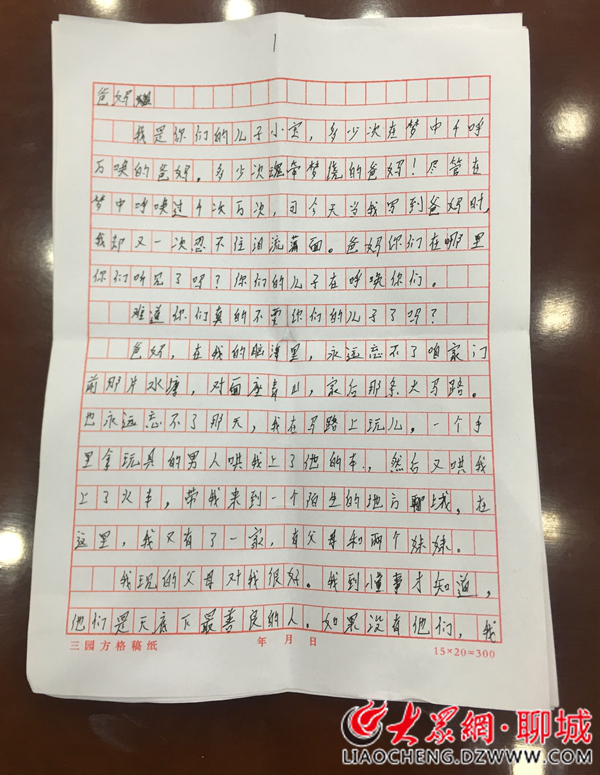 1
爸妈
我是你们的儿子小宝，多少次在梦中千呼
万唤的爸妈。多少次魂牵梦绕的爸妈！尽管在
梦中呼唤过千次万次，可今天当我写到爸妈时，
我却又一次忍不住泪流满面。爸妈你们在哪里
你们听见了吗？你们的儿子在呼唤你们。
难道你们真的不要你们的儿子了吗？
爸妈，在我的脑海里，永远忘不了咱家门
前那片水塘，对面座青山，家后那条大马路。
也永远忘不了那天，我在马路上玩儿。一个手
里拿玩具的男人哄我上了他的车，然后又哄我
上了火车，带我来到一个陌生的地方聊城，在
这里，我又有了一家，有父母和两个妹妹。
我现的父母对我很好。我到懂事才知道，
他们是天底下最善良的人。如果没有他们，我
三园方格稿纸 年 月 日 15×20=300
大众網·聊城
LIAOCHENG.DZWWW.COM